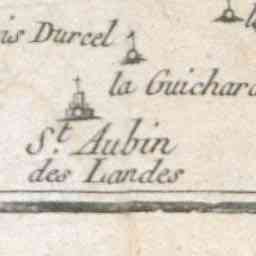 is Durcel
la Guichard
S.t Aubin
des Landes